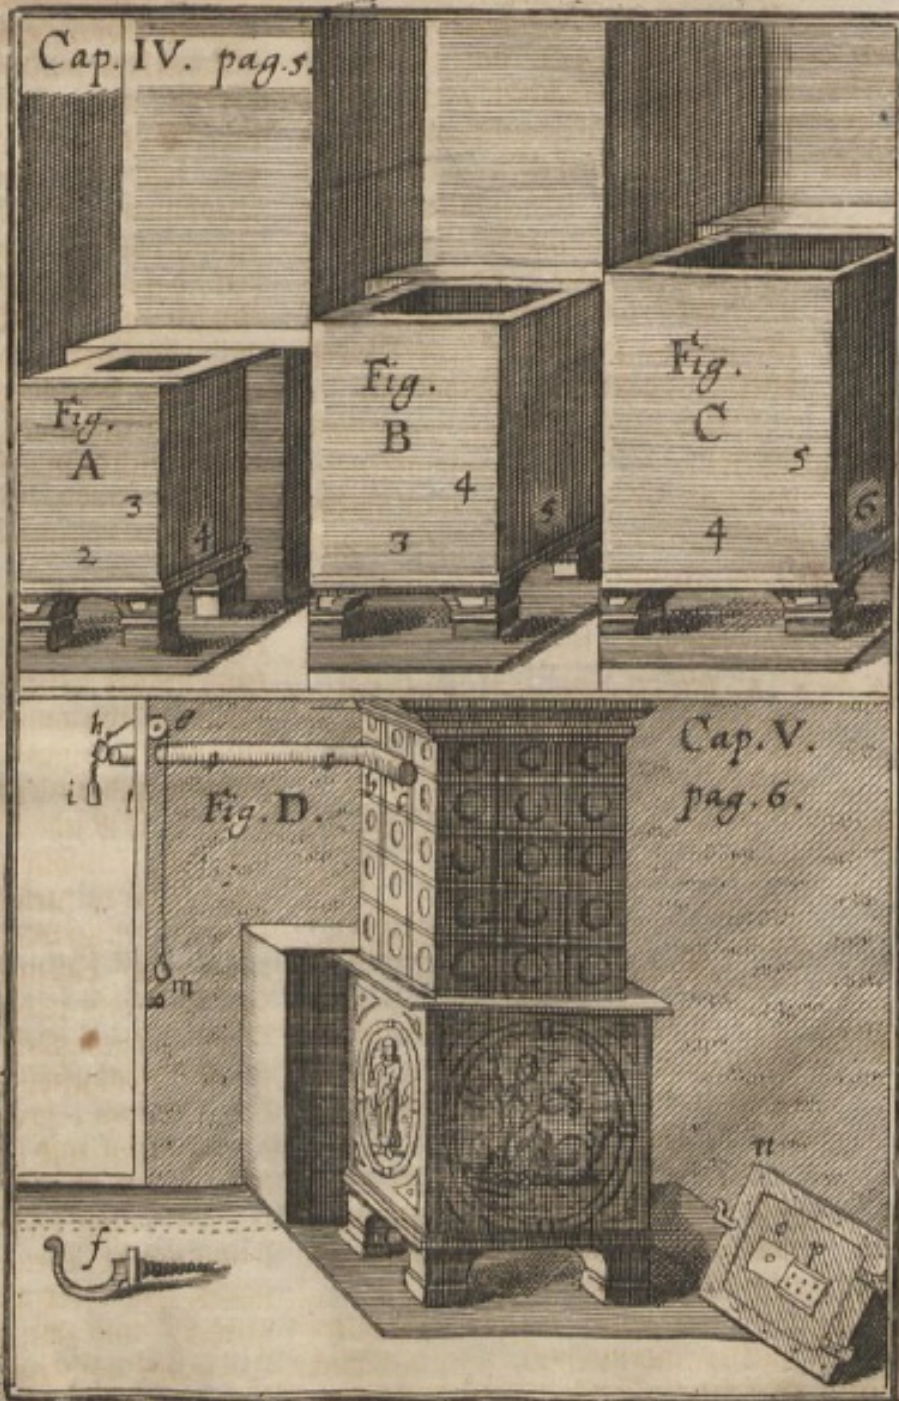 Cap. IV. pag. 5.
Fig.
A
3
2
4
Fig.
B
4
3
5
Fig.
C
5
4
6
Cap. V.
pag. 6.
h
i
l
Fig. D.
b c
m
n
o p
f